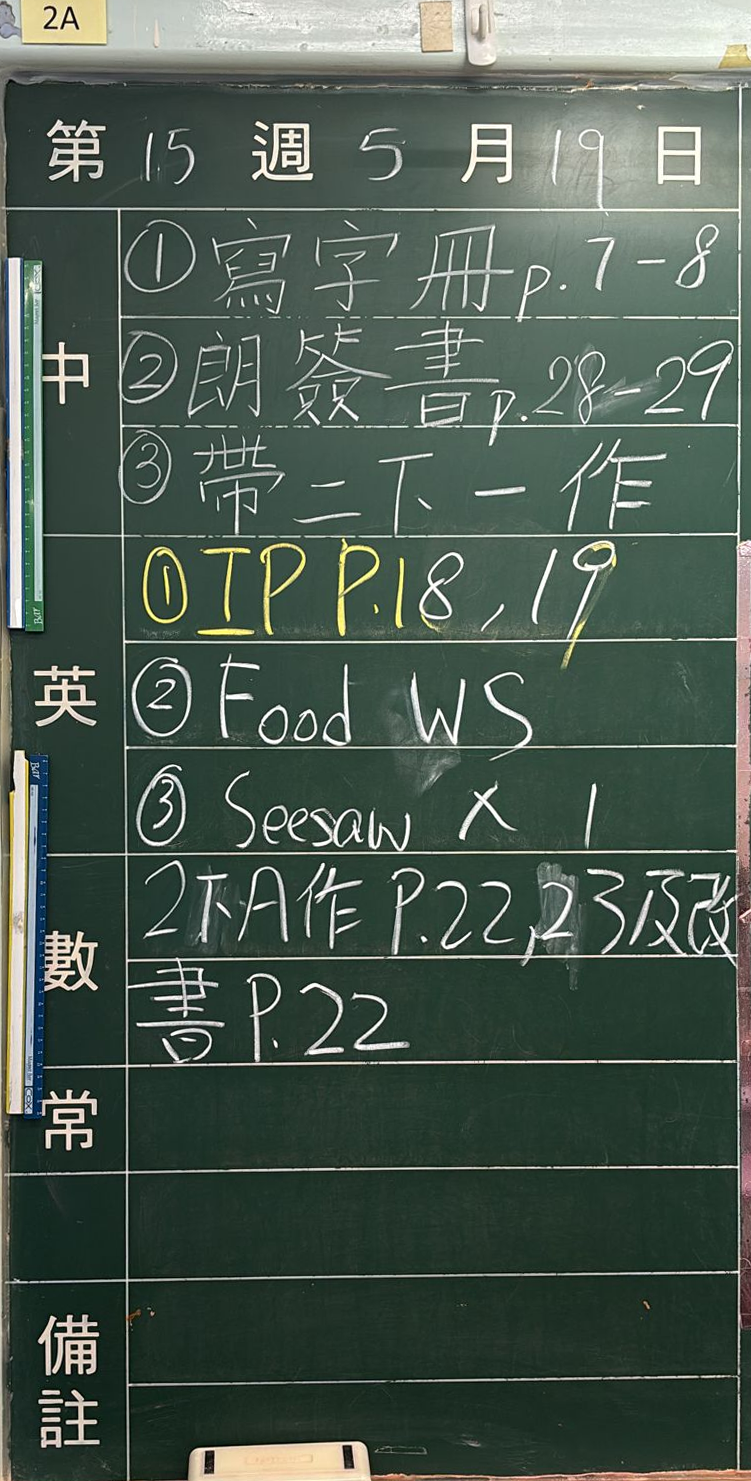 2A
第 15 週 5 月 19 日
中
① 寫字冊 p.7-8
② 朗簽書 p.28-29
③ 帶二下一作
英
① IP P.18, 19
② Food WS
③ Seesaw × 1
數
2下A作 P.22,23及改
書 P.22
常
備註